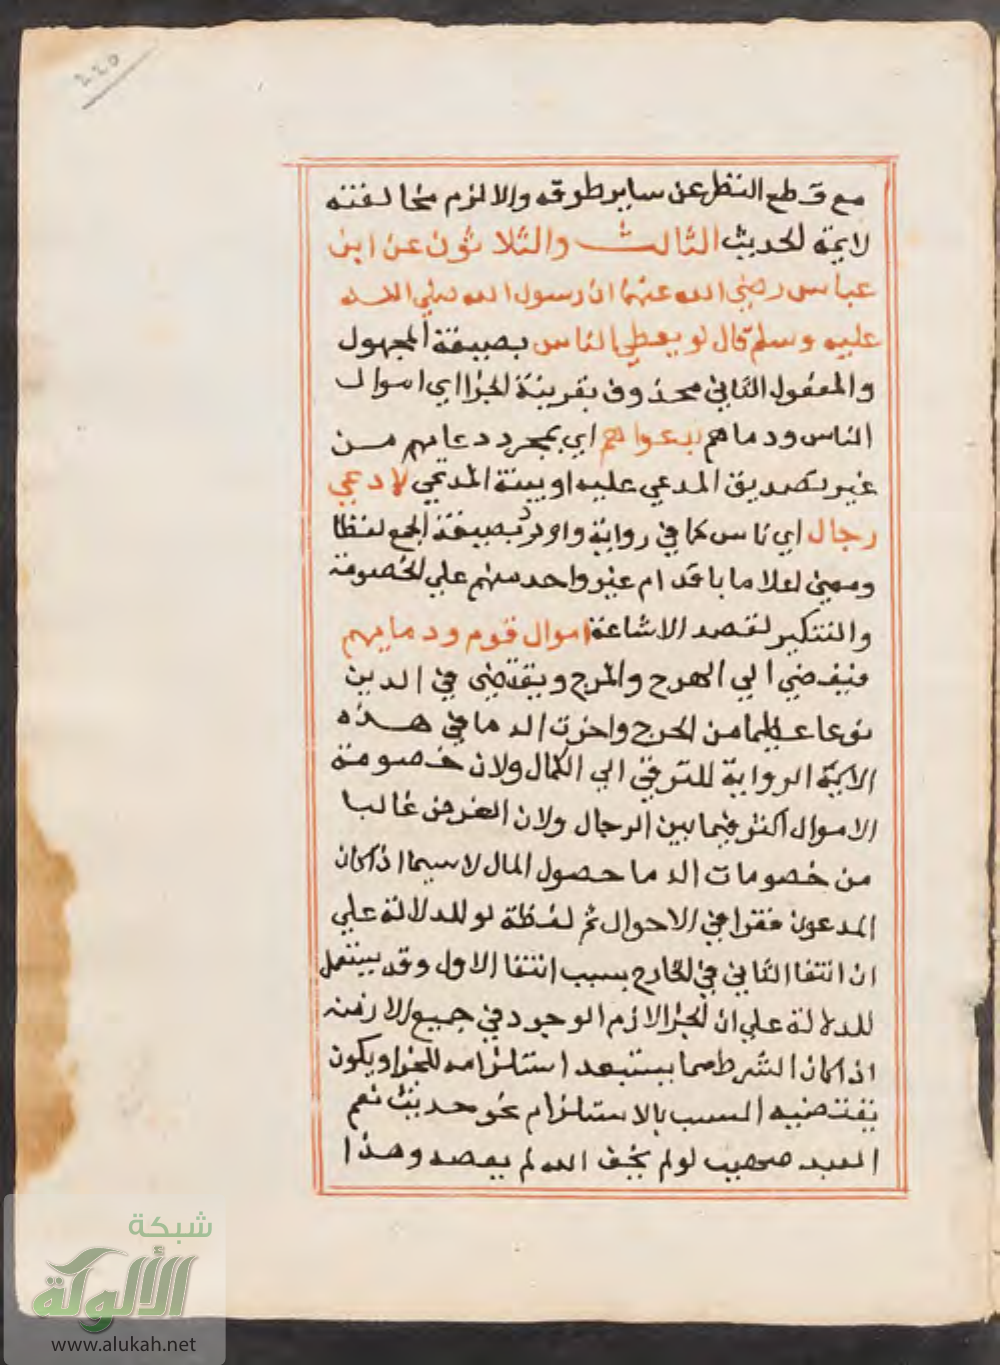 ٢٢٥
مع قطع النظر عن ساير طرقه والا لزم مخالفته
لايمة الحديث الثالث والثلاثون عن ابن
عباس رضي الله عنهما ان رسول الله صلي الله
عليه وسلم قال لو يعطي الناس بصيغة المجهول
والمفعول الثاني محذوف بقرينة الجزا اي اموال
الناس ودماهم بدعواهم اي بمجرد دعايهم من
غير تصديق المدعي عليه او بينة المدعي لادعي
رجال اي ناس كما في رواية واورد بصيغة الجمع لفظا
ومعني اعلاما باقدام غير واحد منهم علي الخصومة
والتنكير لقصد الاشاعة اموال قوم ودمايهم
فيفضي الي الهرج والمرج ويقتضي في الدين
نوعا عظيما من الحرج واخرت الدما في هذه
الرواية للترقي الي الكمال ولان خصومة
الاموال اكثر فيما بين الرجال ولان الغرض غالبا
من خصومات الدما حصول المال لاسيما اذا كان
المدعون فقرا في الاحوال ثم لفظة لو للدلالة علي
ان انتفا الثاني في الخارج بسبب انتفا الاول وقد يستعمل
للدلالة علي ان الجزا لازم الوجود في جميع الازمنه
اذا كان الشرط مما يستبعد استلزامه للجزا ويكون
نقتضيه السبب بالاستلزام نحو حديث نعم
العبد صهيب لو لم يخف الله لم يعصه وهذا
شبكة
الألوكة
www.alukah.net